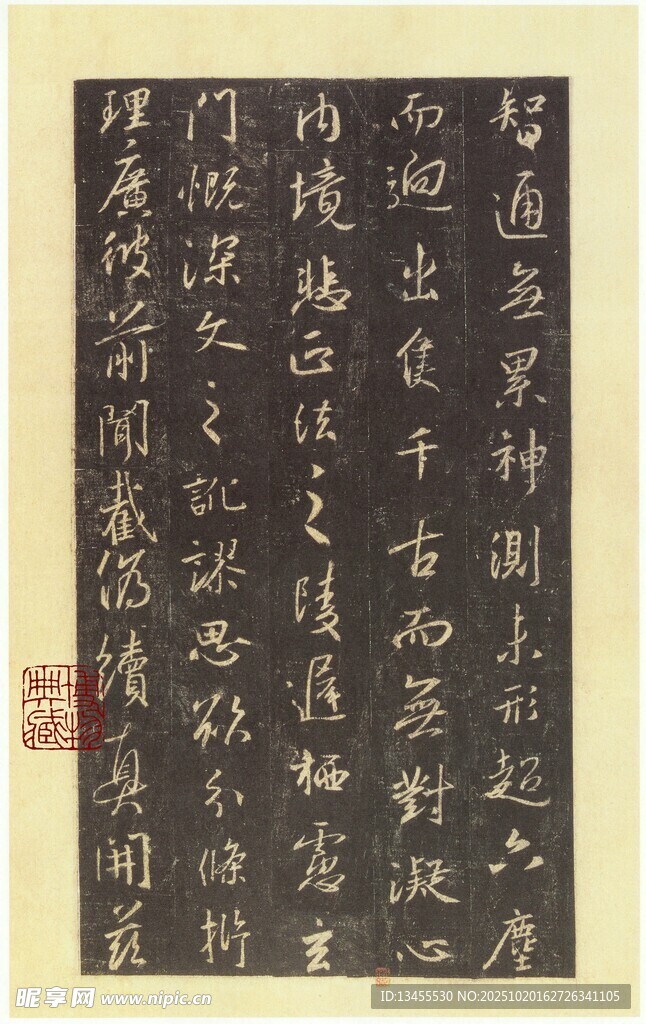 智通無累神測未形超六塵
而迥出隻千古而無對凝心
内境悲正法之陵遲栖慮玄
門慨深文之訛謬思欲分條析
理廣彼前聞截偽續真開茲
博物
典藏
昵享网 www.nipic.cn
ID:13455530 NO:20251020162726341105